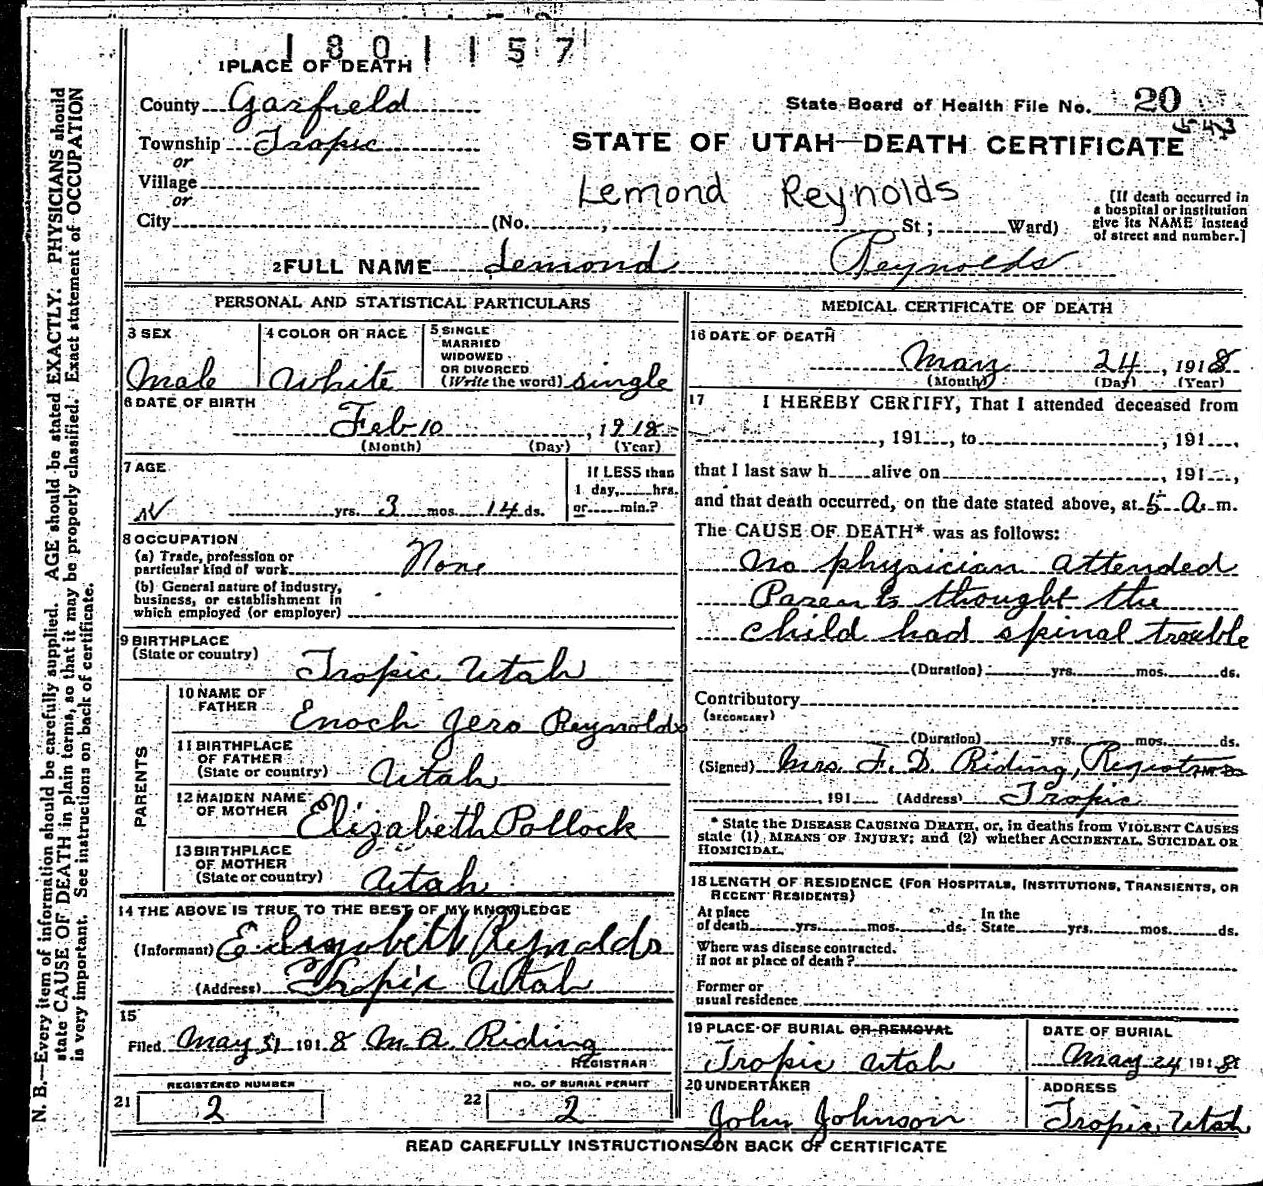 1801157
1 PLACE OF DEATH
County Garfield
State Board of Health File No. 20
543
Township Tropic
or
STATE OF UTAH—DEATH CERTIFICATE
Village
or
Lemond Reynolds
City (No. , St; Ward)
[If death occurred in
a hospital or institution
give its NAME instead
of street and number.]
2 FULL NAME Lemond Reynolds
PERSONAL AND STATISTICAL PARTICULARS
3 SEX
Male
4 COLOR OR RACE
White
5 SINGLE
MARRIED
WIDOWED
OR DIVORCED
(Write the word) single
6 DATE OF BIRTH
Feb 10 , 1918
(Month) (Day) (Year)
7 AGE
yrs. 3 mos. 14 ds.
If LESS than
1 day, hrs.
or min.?
8 OCCUPATION
(a) Trade, profession or
particular kind of work None
(b) General nature of industry,
business, or establishment in
which employed (or employer)
9 BIRTHPLACE
(State or country)
Tropic Utah
PARENTS
10 NAME OF
FATHER
Enoch Jero Reynolds
11 BIRTHPLACE
OF FATHER
(State or country) Utah
12 MAIDEN NAME
OF MOTHER
Elizabeth Pollock
13 BIRTHPLACE
OF MOTHER
(State or country) Utah
14 THE ABOVE IS TRUE TO THE BEST OF MY KNOWLEDGE
(Informant) Elizabeth Reynolds
(Address) Tropic Utah
15
Filed May 31 1918 M. A. Riding
REGISTRAR
REGISTERED NUMBER
21 2
NO. OF BURIAL PERMIT
22 2
MEDICAL CERTIFICATE OF DEATH
16 DATE OF DEATH
May 24 , 1918
(Month) (Day) (Year)
17 I HEREBY CERTIFY, That I attended deceased from
, 191 , to , 191 ,
that I last saw h alive on , 191 ,
and that death occurred, on the date stated above, at 5 A. m.
The CAUSE OF DEATH* was as follows:
No physician attended
Parents thought the
child had spinal trouble
(Duration) yrs. mos. ds.
Contributory
(SECONDARY)
(Duration) yrs. mos. ds.
(Signed) Mrs. F. D. Riding, Registrar M. D.
, 191 (Address) Tropic
* State the DISEASE CAUSING DEATH, or, in deaths from VIOLENT CAUSES
state (1) MEANS OF INJURY; and (2) whether ACCIDENTAL, SUICIDAL OR
HOMICIDAL.
18 LENGTH OF RESIDENCE (FOR HOSPITALS, INSTITUTIONS, TRANSIENTS, OR
RECENT RESIDENTS)
At place
of death yrs. mos. ds.
In the
State yrs. mos. ds.
Where was disease contracted.
if not at place of death?
Former or
usual residence
19 PLACE OF BURIAL OR REMOVAL
Tropic Utah
DATE OF BURIAL
May 24 1918
20 UNDERTAKER
John Johnson
ADDRESS
Tropic, Utah
READ CAREFULLY INSTRUCTIONS ON BACK OF CERTIFICATE
N. B.—Every item of information should be carefully supplied. AGE should be stated EXACTLY. PHYSICIANS should
state CAUSE OF DEATH in plain terms, so that it may be properly classified. Exact statement of OCCUPATION
is very important. See instructions on back of certificate.